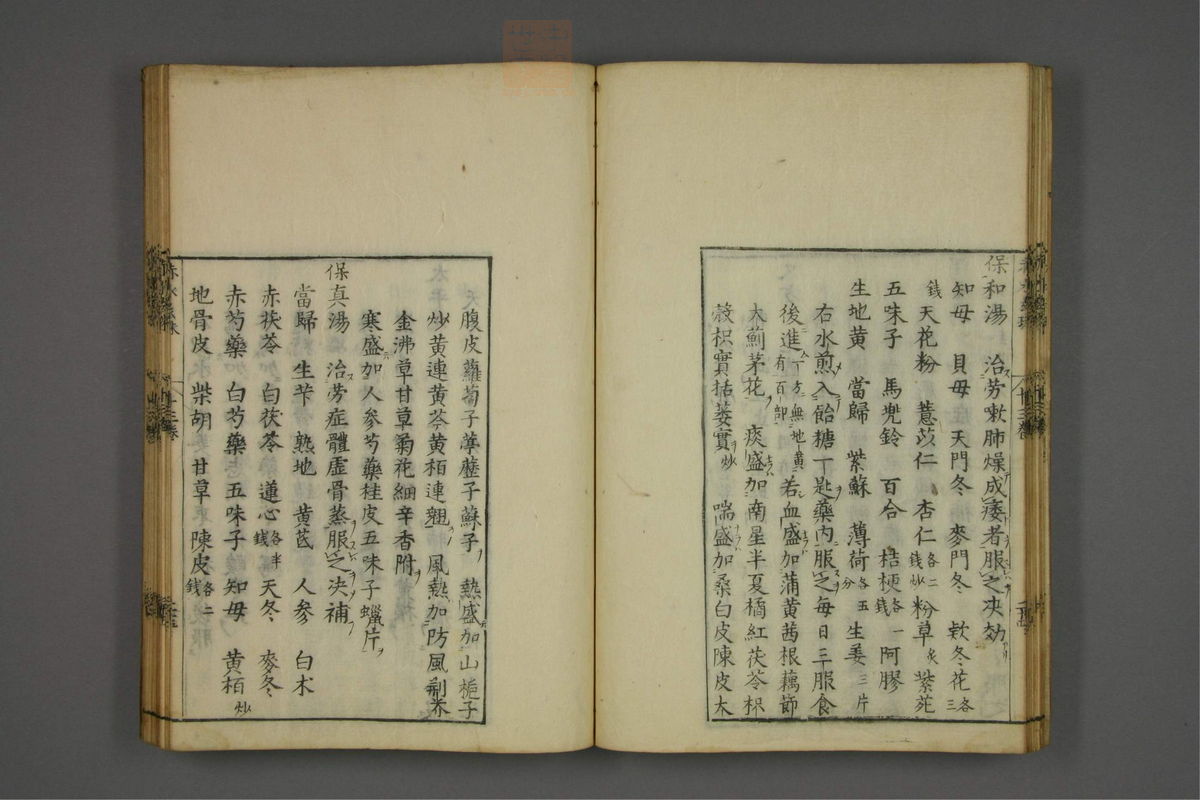 保和湯 治劳嗽肺燥成痿者服之决効
知母 貝母 天門冬 麥門冬 欵冬花各三
錢 天花粉 薏苡仁 杏仁各二錢炒 粉草炙 紫苑
五味子 馬兜鈴 百合 桔梗各一錢 阿膠
生地黄 當歸 紫蘇 薄荷各五分 生姜三片
右水煎入飴糖一匙藥内服之每日三服食
後進一方無地黄有百部 若血盛加蒲黄茜根藕節
大薊茅花 痰盛加南星半夏橘紅茯苓枳
殼枳實括蒌實炒 喘盛加桑白皮陳皮大
腹皮蘿蔔子葶藶子蘇子 熱盛加山梔子
炒黄連黄芩黄栢連翹 風熱加防風荆芥
金沸草甘草菊花細辛香附
寒盛加人參芍藥桂皮五味子蠟片
保真湯 治劳症體虛骨蒸服之决補
當歸 生苄 熟地 黄芪 人參 白术
赤茯苓 白茯苓 蓮心各半錢 天冬 麥冬
赤芍藥 白芍藥 五味子 知母 黄栢炒
地骨皮 柴胡 甘草 陳皮各二錢